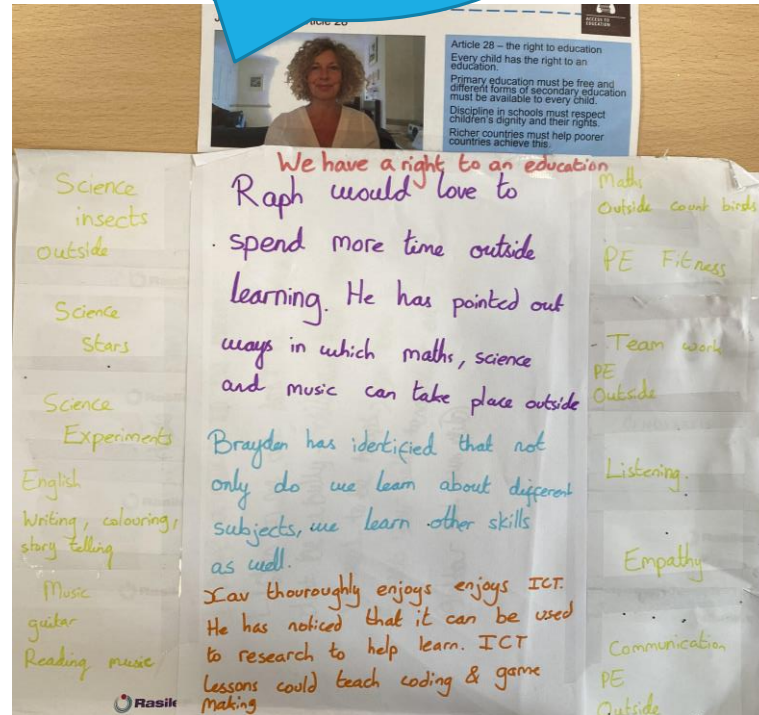 ACCESS TO
EDUCATION
Article 28 – the right to education
Every child has the right to an
education.
Primary education must be free and
different forms of secondary education
must be available to every child.
Discipline in schools must respect
children's dignity and their rights.
Richer countries must help poorer
countries achieve this.
We have a right to an education
Science
insects
outside
Science
Stars
Science
Experiments
English
Writing, colouring,
story telling
Music
guitar
Reading music
Raph would love to
spend more time outside
learning. He has pointed out
ways in which maths, science
and music can take place outside
Brayden has identified that not
only do we learn about different
subjects, we learn other skills
as well.
Xav thouroughly enjoys enjoys ICT.
He has noticed that it can be used
to research to help learn. ICT
Lessons could teach coding & game
making
Maths
Outside count birds
PE Fitness
Team work
PE
Outside
Listening.
Empathy
Communication
PE
Outside